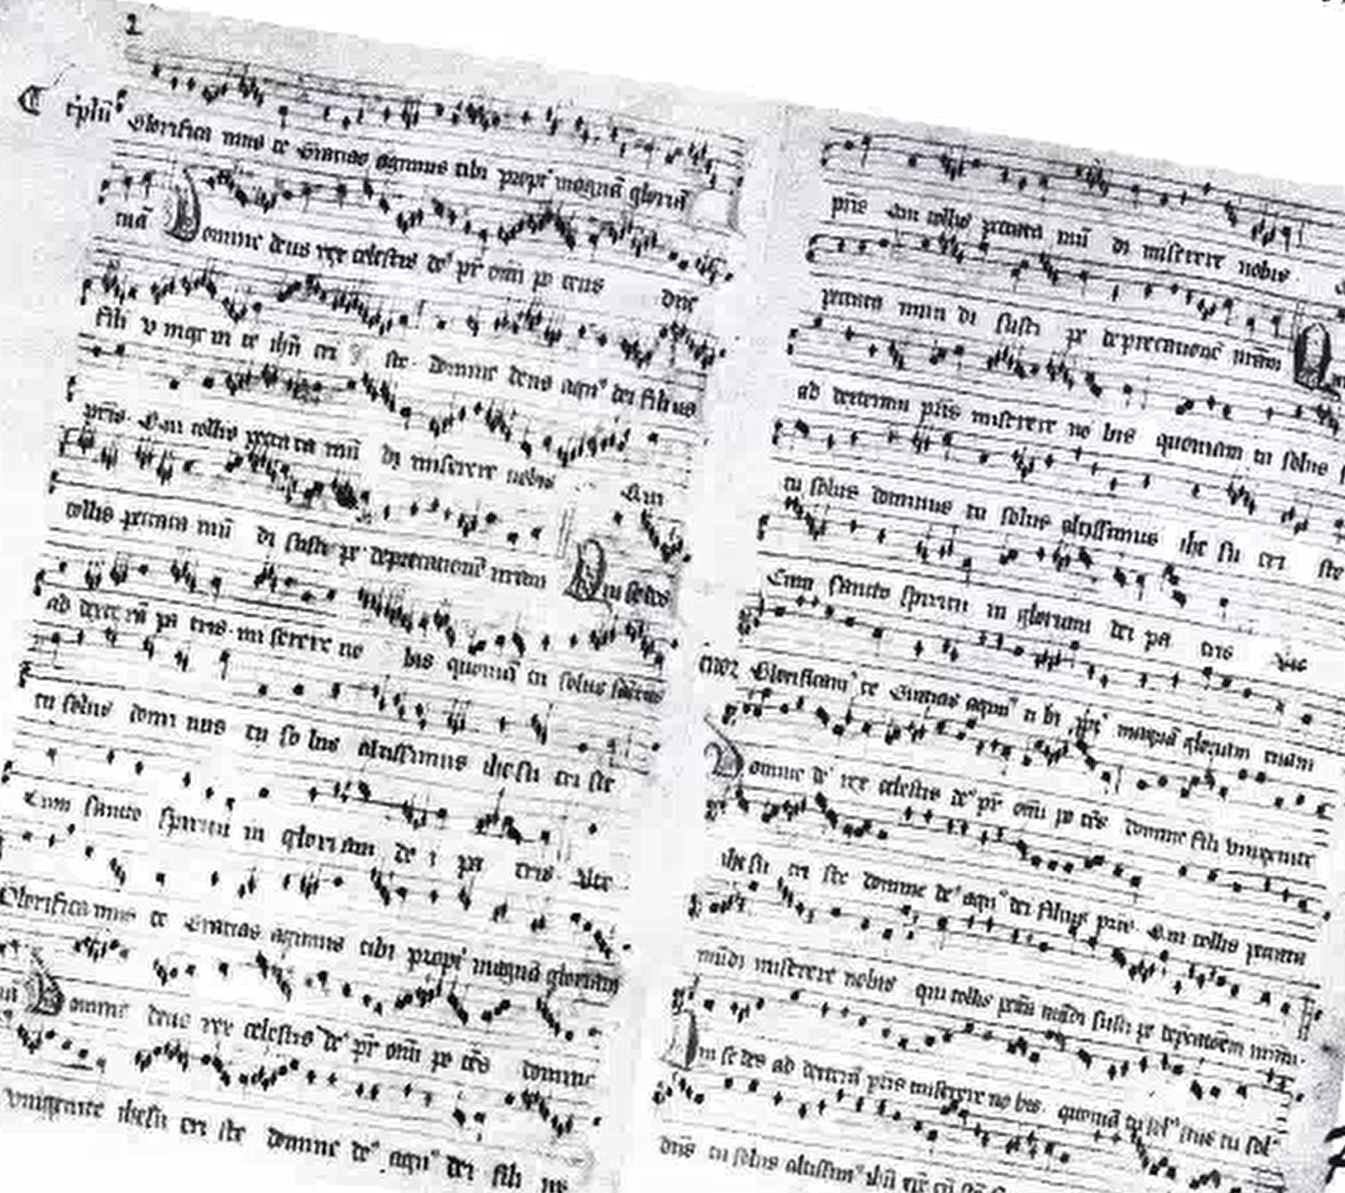 2
Glorificamus te Gratias agimus tibi propt' magnā gloriā
tuā Domine deus rex celestis de' pr̄ om̄i po tens dn̄e
fili v nige ni te ihū cri ste. domine deus agn' dei filius
pr̄is. Qui tollis peccata mū di miserere nobis Qui
tollis peccata mū di susci pe deprecationē nr̄am Qui sedes
ad dexterā pa tris. mi serere no bis quoniā tu solus sāctus
tu solus domi nus tu so lus altissimus ihesu cri ste
Cum sancto spiritu in gloriam de i pa tris
Glorificamus te Gratias agimus tibi propt' magnā gloriam
Domine deus rex celestis de' pr̄ om̄i po tēs domine
unigenite ihesu cri ste domine de' agn' dei fili us
pr̄is Qui tollis peccata mū di miserere nobis
peccata mun di susci pe deprecationē nr̄am Q
ad dexteram pr̄is miserere no bis quoniam tu solus
tu solus dominus tu solus altissimus ihe su cri ste
Cum sancto spiritu in gloriam dei pa tris
Glorificam' te Gratias agim' ti bi ppt' magnā gloriam tuam
Domine d' rex celestis de' pr̄ om̄i po tēs domine fili unigenite
ihesu cri ste domine de' agn' dei filius pr̄is Qui tollis peccata
mūdi miserere nobis qui tollis mūdi susci pe
Qui se des ad dexterā pr̄is miserere no bis. quoniā tu sol' tu sol'
dn̄s tu solus altissim'